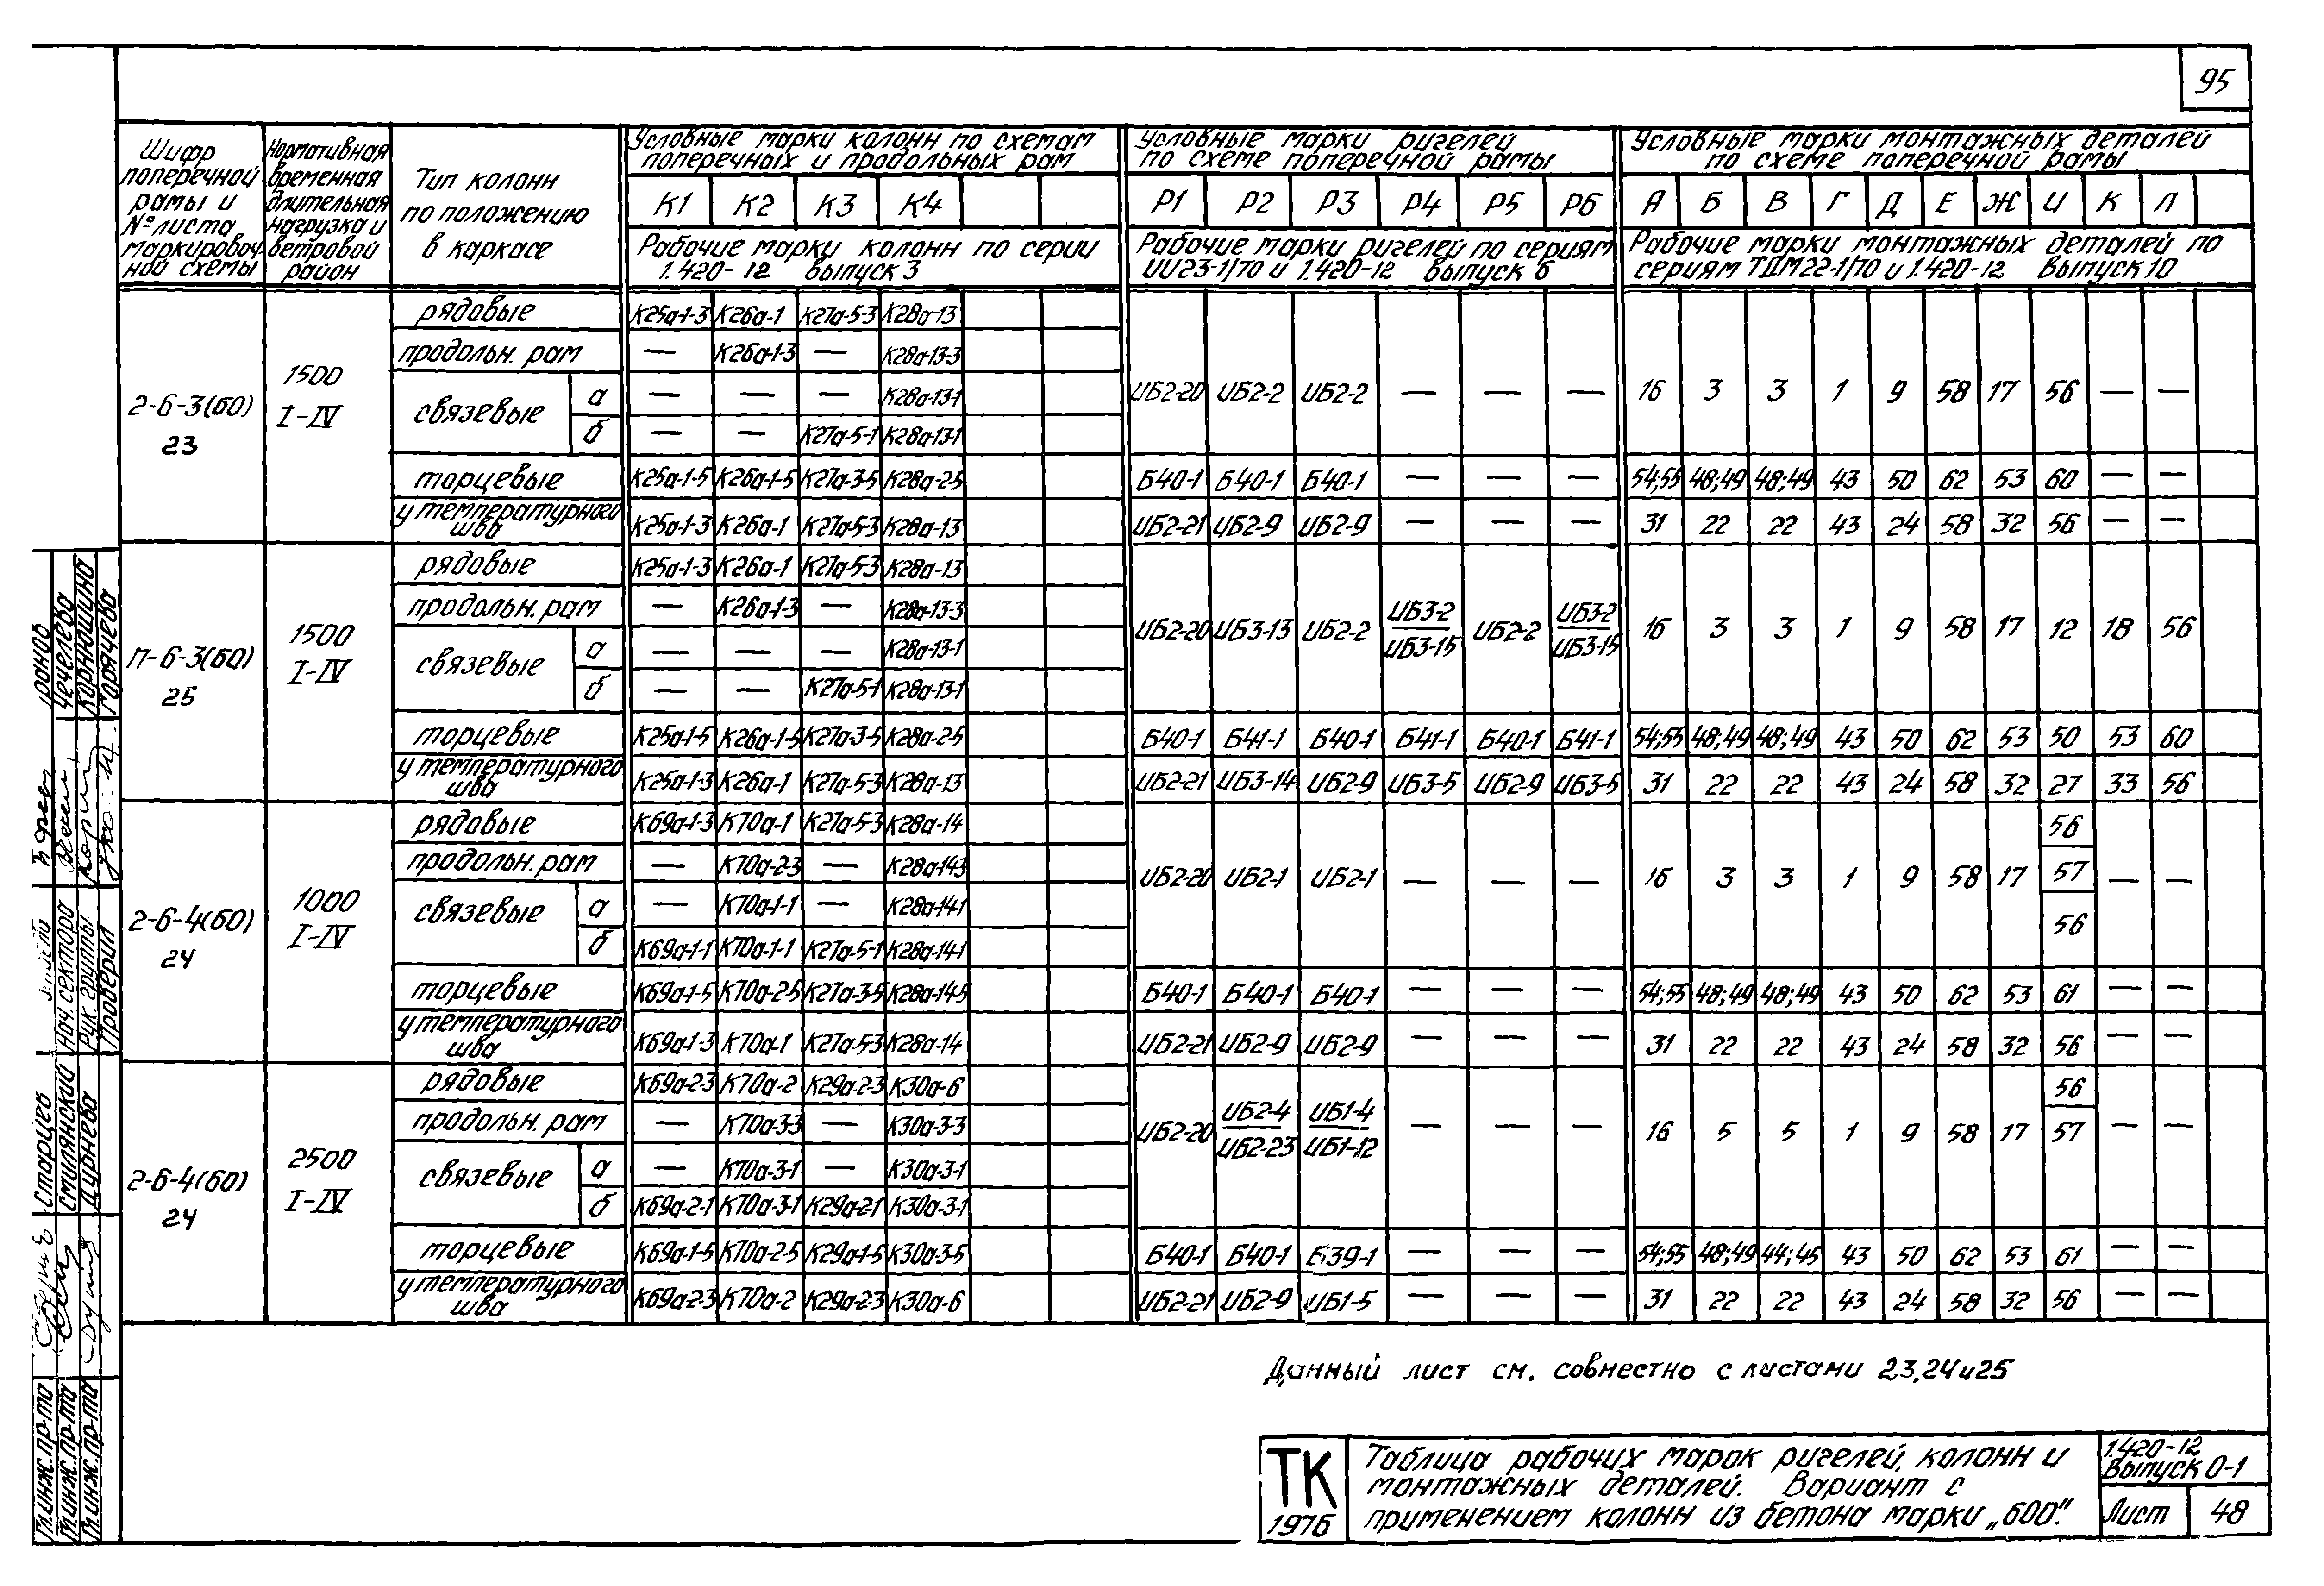 95
Шифр поперечной рамы и № листа маркировочной схемы
Нормативная временная длительная нагрузка и ветровой район
Тип колонн по положению в каркасе
Условные марки колонн по схемам поперечных и продольных рам
Условные марки ригелей по схеме поперечной рамы
Условные марки монтажных деталей по схеме поперечной рамы
К1 К2 К3 К4
Р1 Р2 Р3 Р4 Р5 Р6
А Б В Г Д Е Ж И К Л
Рабочие марки колонн по серии 1.420-12 выпуск 3
Рабочие марки ригелей по сериям ИИ23-1/70 и 1.420-12 выпуск 6
Рабочие марки монтажных деталей по сериям ТДМ22-1/70 и 1.420-12 выпуск 10
2-6-3(60)
23
1500
I-IV
рядовые К25а-1-3 К26а-1 К27а-5-3 К28а-13
продольн. рам — К26а-1-3 — К28а-13-3
связевые
а — — — К28а-13-1
б — — К27а-5-1 К28а-13-1
ИБ2-20 ИБ2-2 ИБ2-2 — — — 16 3 3 1 9 58 17 56 — —
торцевые К25а-1-5 К26а-1-5 К27а-3-5 К28а-2-5 Б40-1 Б40-1 Б40-1 — — — 54;55 48;49 48;49 43 50 62 53 60 — —
у температурного шва К25а-1-3 К26а-1 К27а-5-3 К28а-13 ИБ2-21 ИБ2-9 ИБ2-9 — — — 31 22 22 43 24 58 32 56 — —
П-6-3(60)
25
1500
I-IV
рядовые К25а-1-3 К26а-1 К27а-5-3 К28а-13
продольн. рам — К26а-1-3 — К28а-13-3
связевые
а — — — К28а-13-1
б — — К27а-5-1 К28а-13-1
ИБ2-20 ИБ3-13 ИБ2-2 ИБ3-2 ИБ3-15 ИБ2-2 ИБ3-2 ИБ3-15 16 3 3 1 9 58 17 12 18 56
торцевые К25а-1-5 К26а-1-5 К27а-3-5 К28а-2-5 Б40-1 Б41-1 Б40-1 Б41-1 Б40-1 Б41-1 54;55 48;49 48;49 43 50 62 53 50 53 60
у температурного шва К25а-1-3 К26а-1 К27а-5-3 К28а-13 ИБ2-21 ИБ3-14 ИБ2-9 ИБ3-5 ИБ2-9 ИБ3-5 31 22 22 43 24 58 32 27 33 56
2-6-4(60)
24
1000
I-IV
рядовые К69а-1-3 К70а-1 К27а-5-3 К28а-14
продольн. рам — К70а-2-3 — К28а-14-3
связевые
а — К70а-1-1 — К28а-14-1
б К69а-1-1 К70а-1-1 К27а-5-1 К28а-14-1
ИБ2-20 ИБ2-1 ИБ2-1 — — — 16 3 3 1 9 58 17 56 57 56 — —
торцевые К69а-1-5 К70а-2-5 К27а-3-5 К28а-14-5 Б40-1 Б40-1 Б40-1 — — — 54;55 48;49 48;49 43 50 62 53 61 — —
у температурного шва К69а-1-3 К70а-1 К27а-5-3 К28а-14 ИБ2-21 ИБ2-9 ИБ2-9 — — — 31 22 22 43 24 58 32 56 — —
2-6-4(60)
24
2500
I-IV
рядовые К69а-2-3 К70а-2 К29а-2-3 К30а-6
продольн. рам — К70а-3-3 — К30а-3-3
связевые
а — К70а-3-1 — К30а-3-1
б К69а-2-1 К70а-3-1 К29а-2-1 К30а-3-1
ИБ2-20 ИБ2-4 ИБ2-23 ИБ1-4 ИБ1-12 — — — 16 5 5 1 9 58 17 56 57 — —
торцевые К69а-1-5 К70а-2-5 К29а-1-5 К30а-3-5 Б40-1 Б40-1 Б39-1 — — — 54;55 48;49 44;45 43 50 62 53 61 — —
у температурного шва К69а-2-3 К70а-2 К29а-2-3 К30а-6 ИБ2-21 ИБ2-9 ИБ1-5 — — — 31 22 22 43 24 58 32 56 — —
Данный лист см. совместно с листами 23,24 и 25
ТК
1976
Таблица рабочих марок ригелей, колонн и
монтажных деталей. Вариант с
применением колонн из бетона марки „600".
1.420-12
Выпуск 0-1
Лист 48
Гл.инж.пр-та Старцев
Гл.инж.пр-та Смилянский
Гл.инж.пр-та Дурнева
Нач. сектора Чечелева
Рук. группы Корнюшина
Проверил Горячева